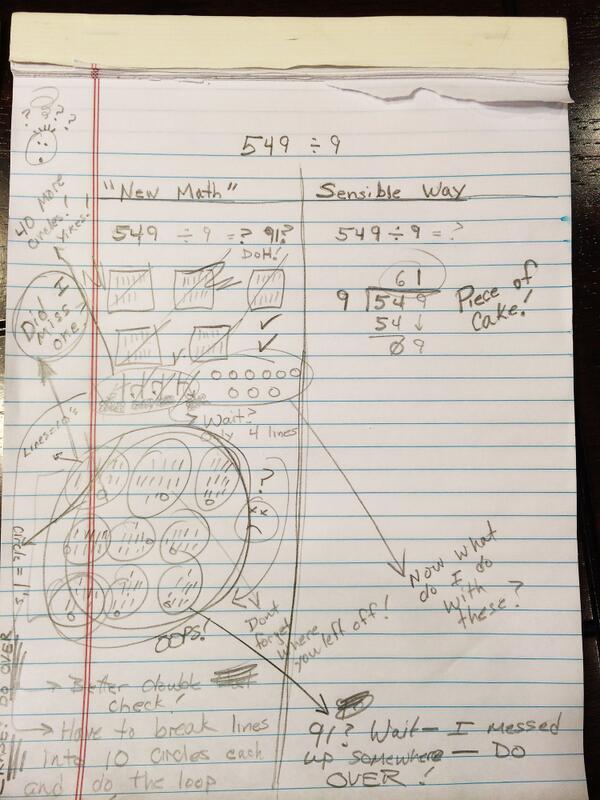 549 ÷ 9
"New Math"
549 ÷ 9 = ? 91?
DOH!
Wait?
only 4 lines
40 More
circles!
Yikes!
Did I
Miss
one?
Lines = 10's
circle = 1's
?
OOPS!
Dont
forget
where
you left off!
DO OVER
→ Better double
check!
→ Have to break lines
into 10 circles each
and do the loop
Sensible Way
549 ÷ 9 = ?
61
9 549
54 ↓
09
Piece of
Cake!
Now what
do I do
with
these?
91? Wait— I messed
up somewhere — DO
OVER!